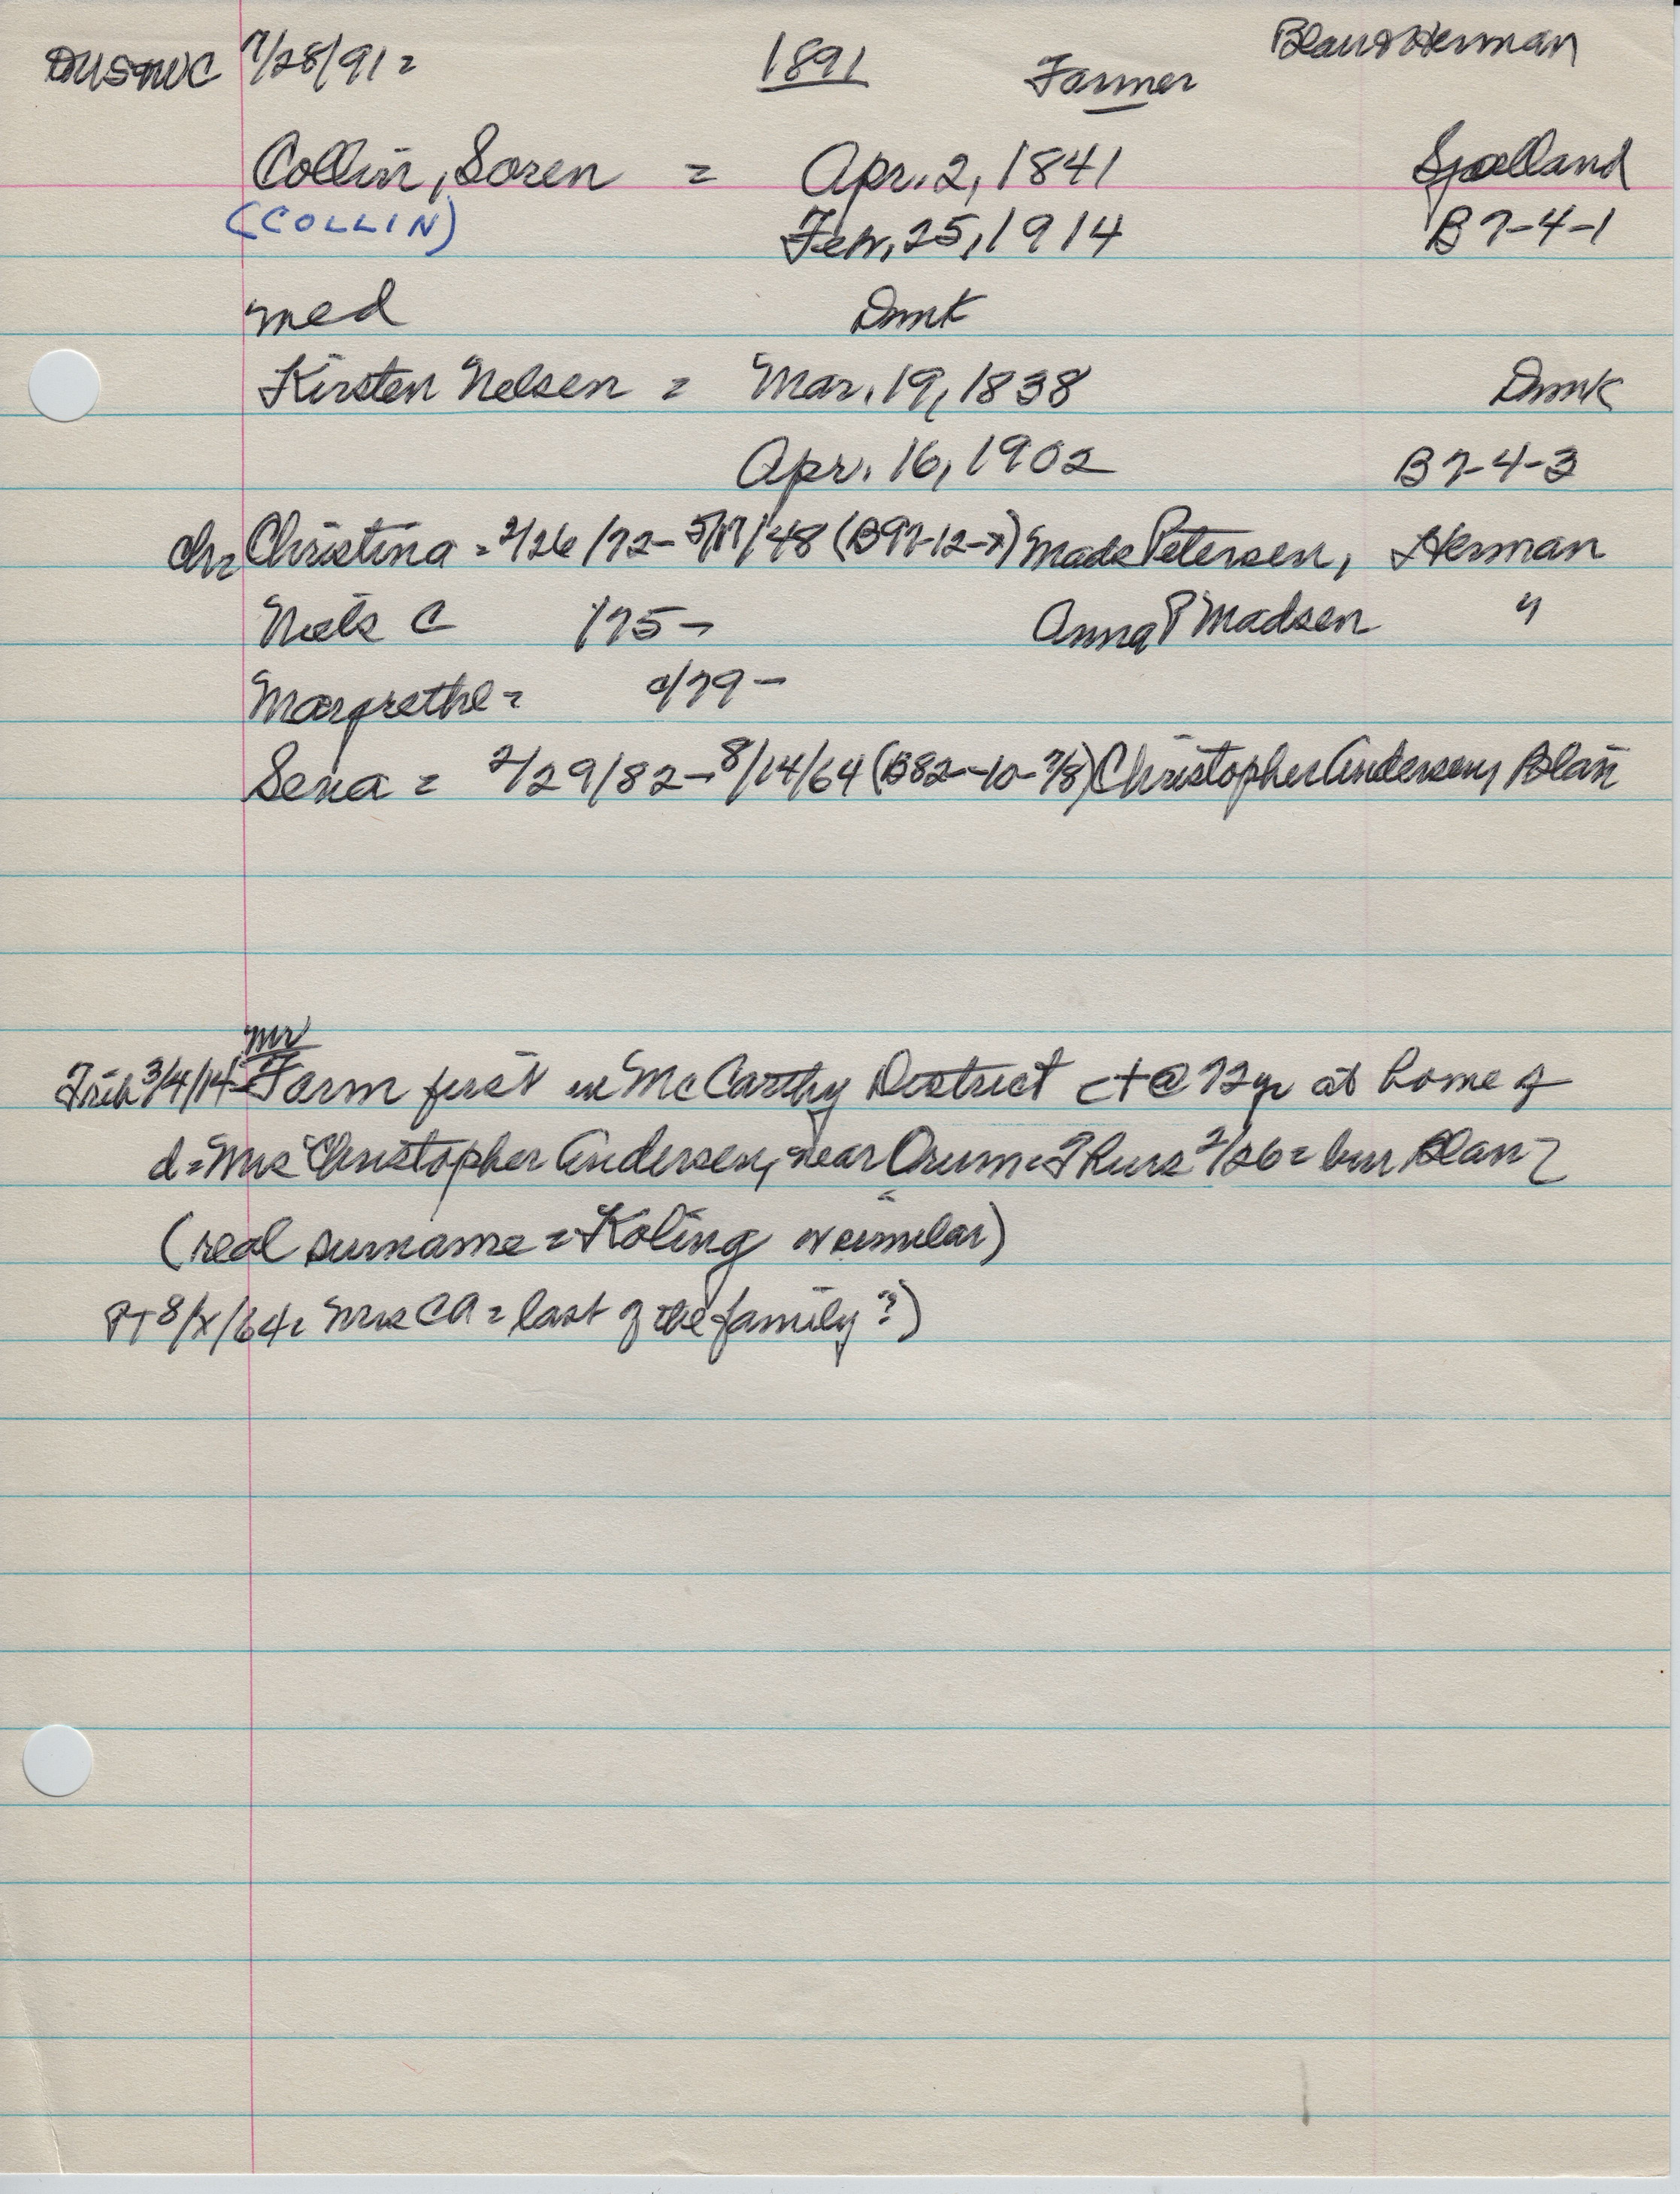 7/28/91= 1891 Farmer Blair & Herman
Collin, Soren = Apr. 2, 1841 Sjaelland
(COLLIN) Feb. 25, 1914 B 7-4-1
med Dmk
Kirsten Nelsen = Mar. 19, 1838 Dmk
Apr. 16, 1902 B 7-4-3
ch= Christina = 2/26/72- 5/17/48 (B97-12-7) Mads Petersen, Herman
Niels C /75- Anna P Madsen "
Margrethe = c/79-
Sena = 2/29/82-8/14/64 (B82-10-7/8) Christopher Andersen, Blair
Mr
3/4/14- Farm first in McCarthy District ct @ 72 yr at home of
d=Mrs Christopher Andersen, near Orum = Thurs 2/26 = bur Blair
(real surname = Koling or similar)
PT 8/x/64= Mrs CA = last of the family?)